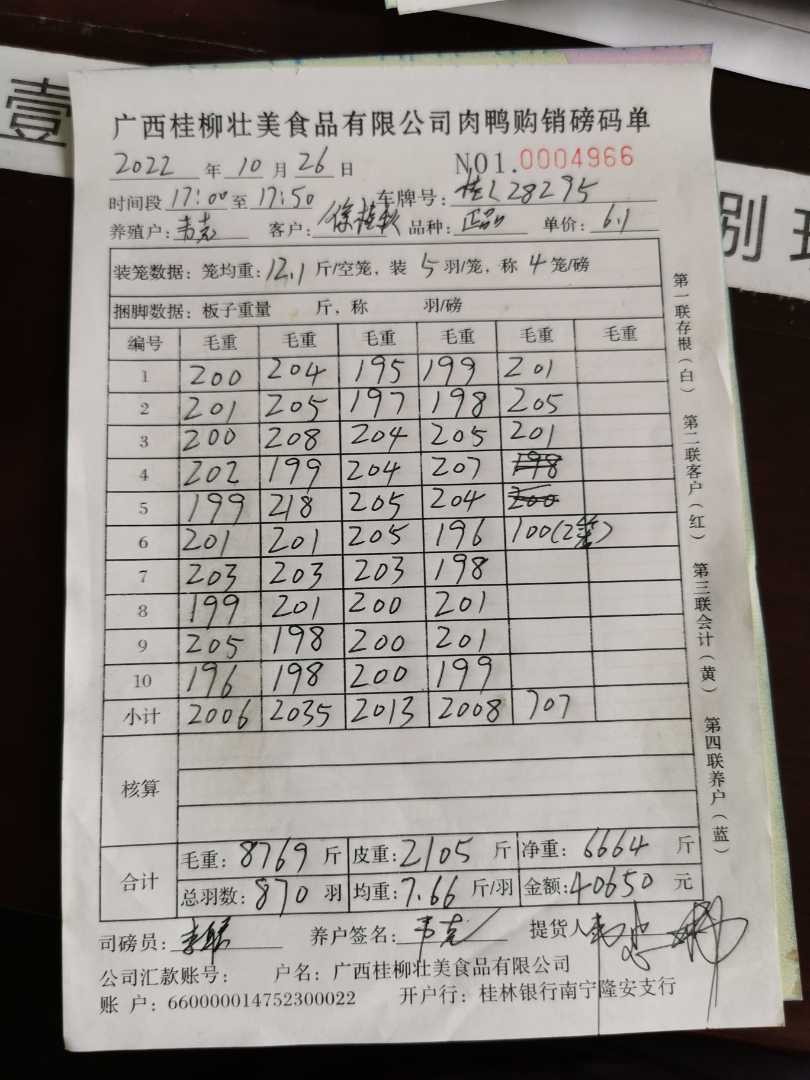 壹
捌
广西桂柳壮美食品有限公司肉鸭购销磅码单
2022 年 10 月 26 日 NO1.0004966
时间段 17:00 至 17:50 车牌号: 桂L28295
养殖户: 韦克 客户: 品种: 正品 单价: 6.1
装笼数据: 笼均重: 12.1 斤/空笼, 装 5 羽/笼, 称 4 笼/磅
捆脚数据: 板子重量 斤, 称 羽/磅
编号 毛重 毛重 毛重 毛重 毛重 毛重
1 200 204 195 199 201
2 201 205 197 198 205
3 200 208 204 205 201
4 202 199 204 207 198
5 199 218 205 204 200
6 201 201 205 196 100(2笼)
7 203 203 203 198
8 199 201 200 201
9 205 198 200 201
10 196 198 200 199
小计 2006 2035 2013 2008 707
核算
合计
毛重: 8769 斤 皮重: 2105 斤 净重: 6664 斤
总羽数: 870 羽 均重: 7.66 斤/羽 金额: 40650 元
司磅员: 养户签名: 韦克 提货人
公司汇款账号: 户名: 广西桂柳壮美食品有限公司
账 户: 660000014752300022 开户行: 桂林银行南宁隆安支行
第一联存根(白) 第二联客户(红) 第三联会计(黄) 第四联养户(蓝)